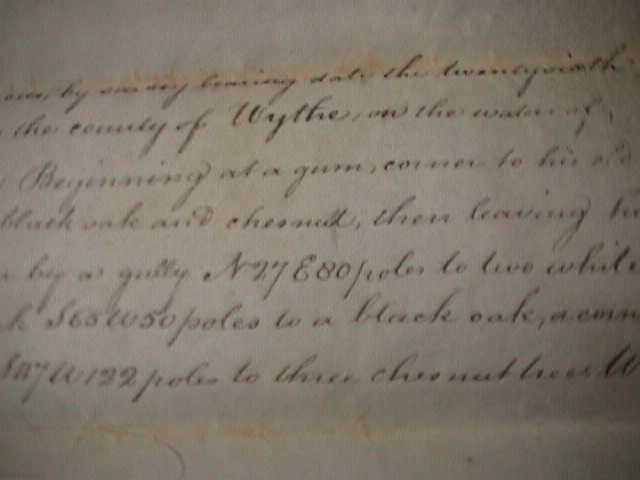 by survey bearing date the twentysixth
the county of Wythe, on the waters of
Beginning at a gum, corner to his old
black oak and chesnutt, then leaving
by a gully N27 E80 poles to two white
S65 W50 poles to a black oak, a corn
W122 poles to three chesnut trees